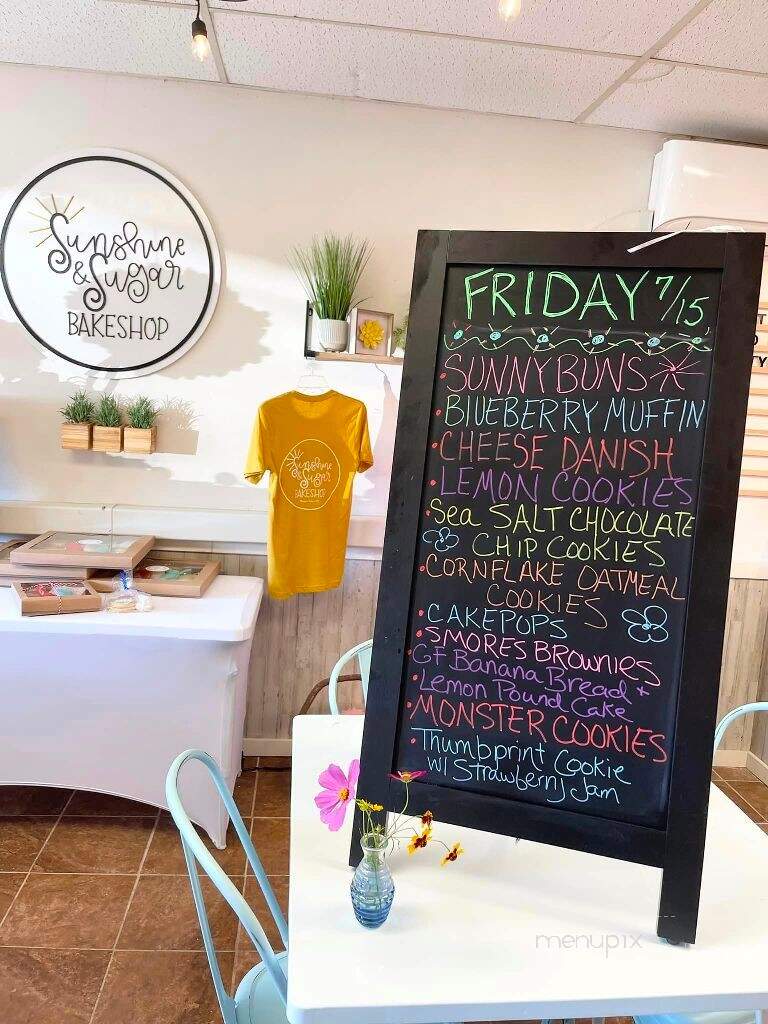 Sunshine
& Sugar
BAKESHOP
Sunshine
& Sugar
BAKESHOP
FRIDAY 7/15
• SUNNYBUNS
• BLUEBERRY MUFFIN
• CHEESE DANISH
• LEMON COOKIES
Sea SALT CHOCOLATE
CHIP COOKIES
• CORNFLAKE OATMEAL
COOKIES
• CAKEPOPS
• SMORES BROWNIES
GF Banana Bread +
• Lemon Pound Cake
• MONSTER COOKIES
• Thumbprint Cookie
w/ Strawberry Jam
menupix